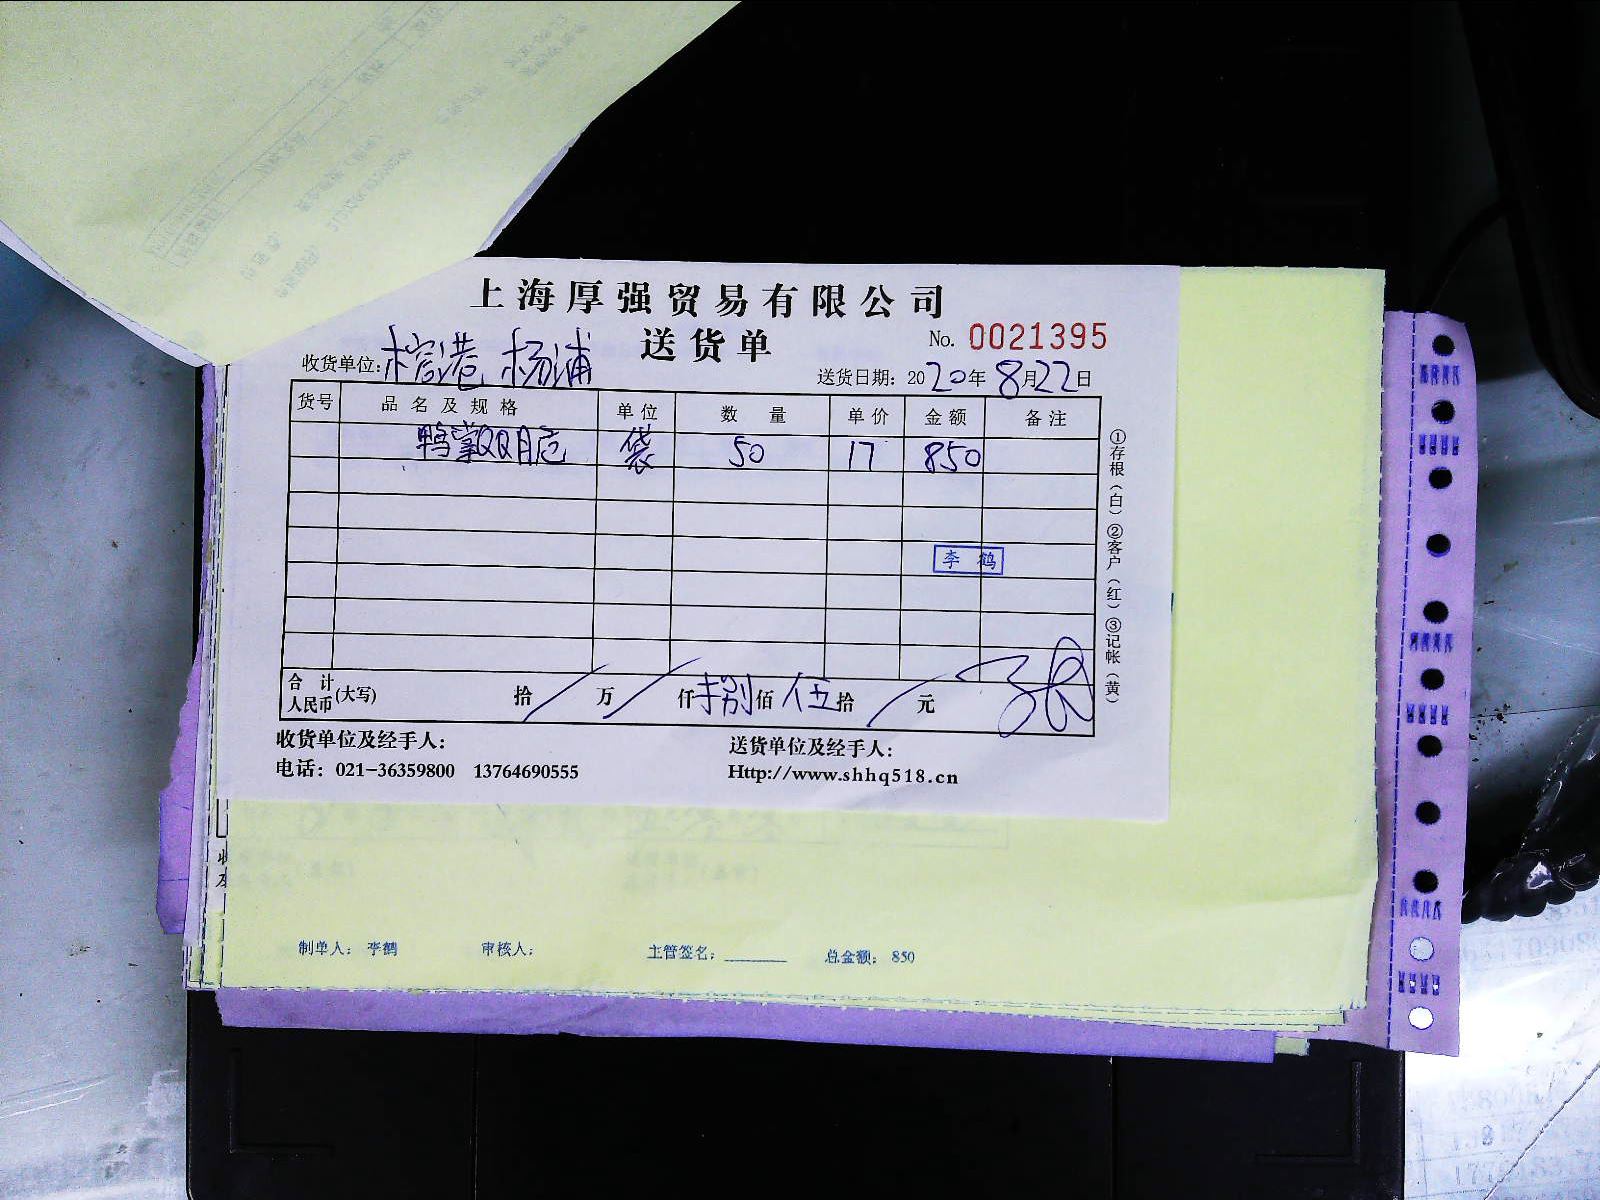 上海厚强贸易有限公司
送货单
No. 0021395
收货单位: 榕港 杨浦
送货日期: 2020年8月22日
货号 品名及规格 单位 数量 单价 金额 备注
鸭掌QQ月 袋 50 17 850
李鹤
合计人民币(大写) 拾 / 万 / 仟 捌 佰 伍 拾 / 元
收货单位及经手人:
送货单位及经手人:
电话: 021-36359800 13764690555
Http://www.shhq518.cn
①存根(白)②客户(红)③记帐(黄)
制单人: 李鹤 审核人: 主管签名:________ 总金额: 850